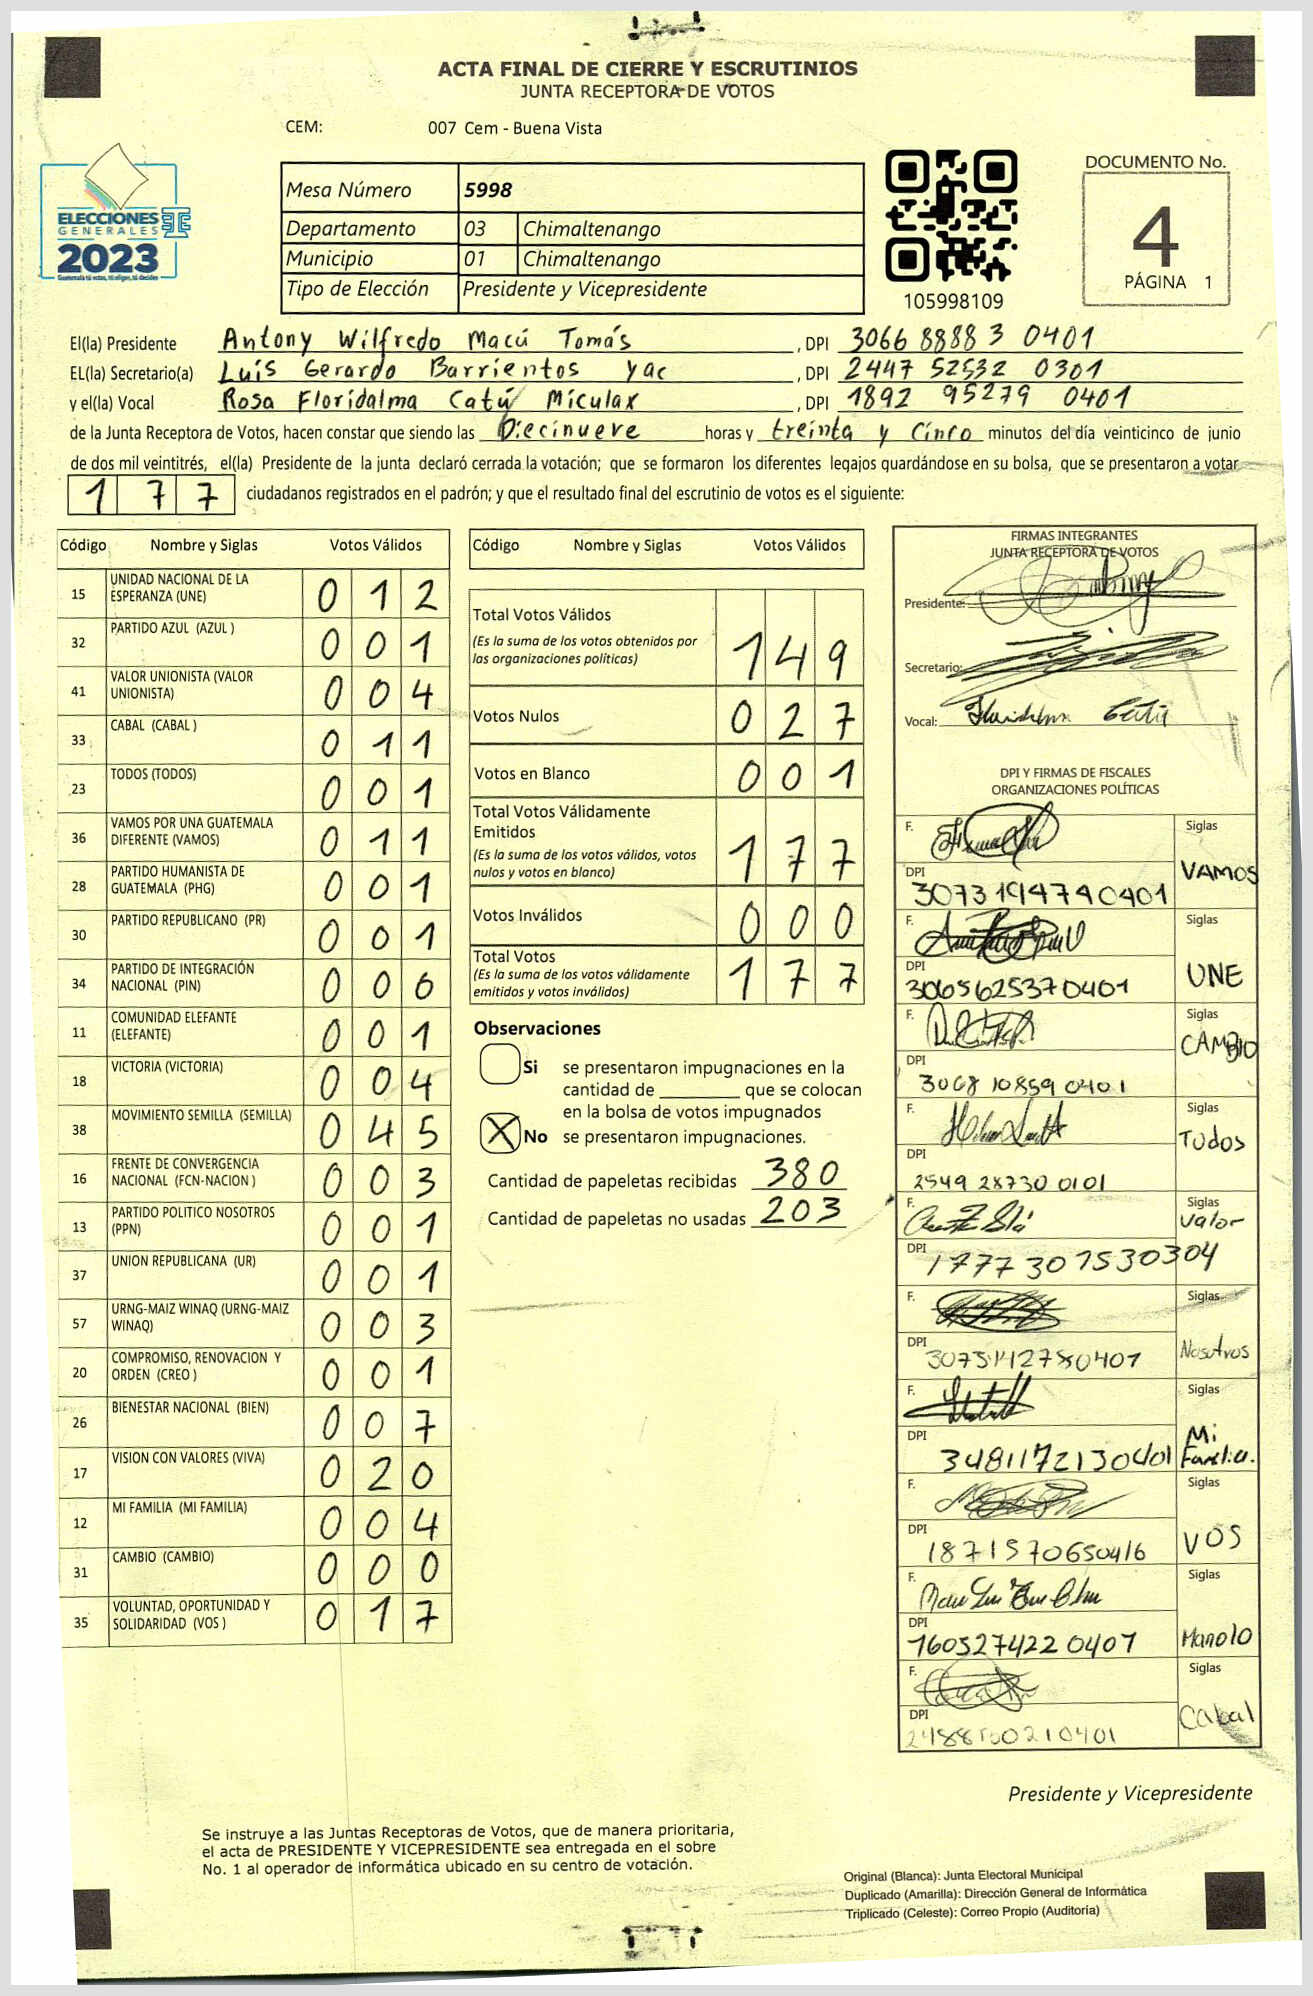 ACTA FINAL DE CIERRE Y ESCRUTINIOS
JUNTA RECEPTORA DE VOTOS
CEM: 007 Cem - Buena Vista
ELECCIONES
GENERALES
2023
Mesa Número 5998
Departamento 03 Chimaltenango
Municipio 01 Chimaltenango
Tipo de Elección Presidente y Vicepresidente
105998109
DOCUMENTO No.
4
PÁGINA 1
El(la) Presidente Antony Wilfredo Macú Tomás , DPI 3066 8888 3 0401
EL(la) Secretario(a) Luis Gerardo Barrientos Yac , DPI 2447 52532 0301
y el(la) Vocal Rosa Floridalma Catú Miculax , DPI 1892 95279 0401
de la Junta Receptora de Votos, hacen constar que siendo las Diecinueve horas y treinta y Cinco minutos del día veinticinco de junio
de dos mil veintitrés, el(la) Presidente de la junta declaró cerrada la votación; que se formaron los diferentes legajos quardándose en su bolsa, que se presentaron a votar
177 ciudadanos registrados en el padrón; y que el resultado final del escrutinio de votos es el siguiente:
Código Nombre y Siglas Votos Válidos
15 UNIDAD NACIONAL DE LA ESPERANZA (UNE) 0 1 2
32 PARTIDO AZUL (AZUL ) 0 0 1
41 VALOR UNIONISTA (VALOR UNIONISTA) 0 0 4
33 CABAL (CABAL ) 0 1 1
23 TODOS (TODOS) 0 0 1
36 VAMOS POR UNA GUATEMALA DIFERENTE (VAMOS) 0 1 1
28 PARTIDO HUMANISTA DE GUATEMALA (PHG) 0 0 1
30 PARTIDO REPUBLICANO (PR) 0 0 1
34 PARTIDO DE INTEGRACIÓN NACIONAL (PIN) 0 0 6
11 COMUNIDAD ELEFANTE (ELEFANTE) 0 0 1
18 VICTORIA (VICTORIA) 0 0 4
38 MOVIMIENTO SEMILLA (SEMILLA) 0 4 5
16 FRENTE DE CONVERGENCIA NACIONAL (FCN-NACION ) 0 0 3
13 PARTIDO POLITICO NOSOTROS (PPN) 0 0 1
37 UNION REPUBLICANA (UR) 0 0 1
57 URNG-MAIZ WINAQ (URNG-MAIZ WINAQ) 0 0 3
20 COMPROMISO, RENOVACION Y ORDEN (CREO ) 0 0 1
26 BIENESTAR NACIONAL (BIEN) 0 0 7
17 VISION CON VALORES (VIVA) 0 2 0
12 MI FAMILIA (MI FAMILIA) 0 0 4
31 CAMBIO (CAMBIO) 0 0 0
35 VOLUNTAD, OPORTUNIDAD Y SOLIDARIDAD (VOS ) 0 1 7
Código Nombre y Siglas Votos Válidos
Total Votos Válidos 1 4 9
(Es la suma de los votos obtenidos por
las organizaciones políticas)
Votos Nulos 0 2 7
Votos en Blanco 0 0 1
Total Votos Válidamente
Emitidos 1 7 7
(Es la suma de los votos válidos, votos
nulos y votos en blanco)
Votos Inválidos 0 0 0
Total Votos 1 7 7
(Es la suma de los votos válidamente
emitidos y votos inválidos)
Observaciones
Si se presentaron impugnaciones en la
cantidad de ________ que se colocan
en la bolsa de votos impugnados
X No se presentaron impugnaciones.
Cantidad de papeletas recibidas 380
Cantidad de papeletas no usadas 203
FIRMAS INTEGRANTES
JUNTA RECEPTORA DE VOTOS
Presidente:
Secretario:
Vocal: Catú
DPI Y FIRMAS DE FISCALES
ORGANIZACIONES POLÍTICAS
F. Siglas
DPI VAMOS
3073194740401
F. Siglas
DPI UNE
3065625370401
F. Siglas
DPI CAMBIO
3068 10859 0401
F. Siglas
DPI Todos
2549 28730 0101
F. Siglas
DPI Valor
1777 307530304
F. Siglas
DPI Nosotros
F. Siglas
DPI Mi Familia.
3481172130401
F. Siglas
DPI VOS
1871570650416
F. Siglas
DPI Manolo
160527422 0401
F. Siglas
DPI Cabal
Presidente y Vicepresidente
Se instruye a las Juntas Receptoras de Votos, que de manera prioritaria,
el acta de PRESIDENTE Y VICEPRESIDENTE sea entregada en el sobre
No. 1 al operador de informática ubicado en su centro de votación.
Original (Blanca): Junta Electoral Municipal
Duplicado (Amarilla): Dirección General de Informática
Triplicado (Celeste): Correo Propio (Auditoría)